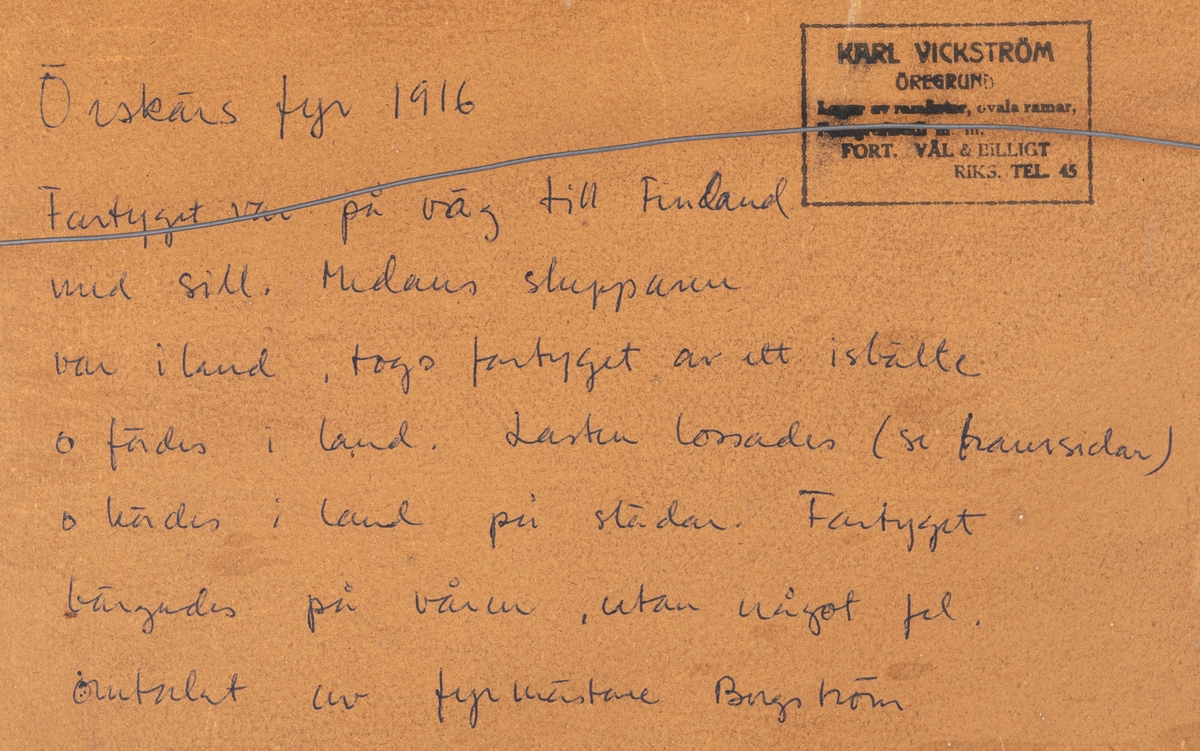 Örskärs fyr 1916
KARL VICKSTRÖM
ÖREGRUND
Lager av ramlister, ovala ramar,
m.
FORT. VÄL & BILLIGT
RIKS. TEL. 45
Fartyget var på väg till Finland
med sill. Medans skepparen
var i land, togs fartyget av ett isbälte
o fördes i land. Lasten lossades (se framsidan)
o kördes i land på slädar. Fartyget
bärgades på våren, utan något fel.
omtalat av fyrmästare Bergström